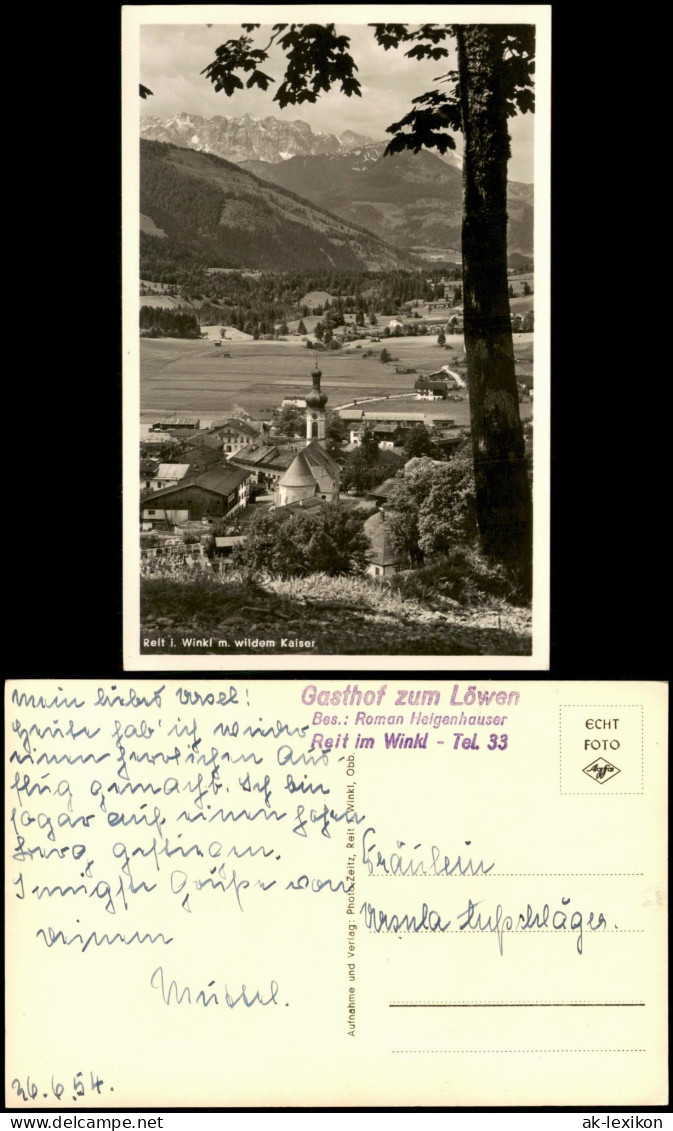 Reit i. Winkl m. wildem Kaiser
Mein liebes Ursel!
Heute hab' ich wieder
einen herrlichen Aus-
flug gemacht. Ich bin
sogar auf einen hohen
Berg gestiegen.
Innigste Grüße von
Deinem
26.6.54.
Gasthof zum Löwen
Bes.: Roman Heigenhauser
Reit im Winkl - Tel. 33
Aufnahme und Verlag: Photo-Zeitz, Reit i. Winkl, Obb.
ECHT
FOTO
Agfa
Fräulein
Ursula Aufschläger.
ak-lexikon